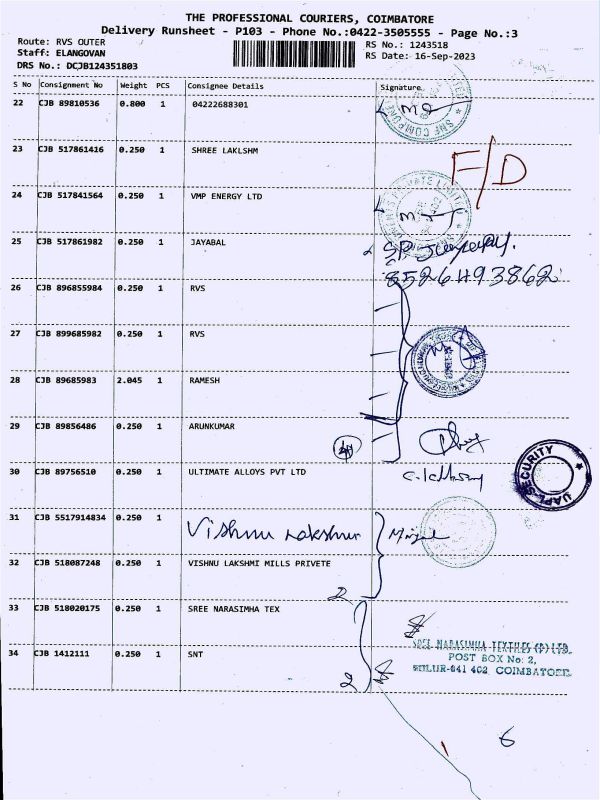 THE PROFESSIONAL COURIERS, COIMBATORE
Delivery Runsheet - P103 - Phone No.:0422-3505555 - Page No.:3
Route: RVS OUTER
RS No.: 1243518
Staff: ELANGOVAN
RS Date: 16-Sep-2023
DRS No.: DCJB124351803
S No Consignment No Weight PCS Consignee Details Signature
22 CJB 89810536 0.800 1 04222688301
23 CJB 517861416 0.250 1 SHREE LAKLSHM
F/D
24 CJB 517841564 0.250 1 VMP ENERGY LTD
25 CJB 517861982 0.250 1 JAYABAL
8526493862
26 CJB 896855984 0.250 1 RVS
27 CJB 899685982 0.250 1 RVS
28 CJB 89685983 2.045 1 RAMESH
29 CJB 89856486 0.250 1 ARUNKUMAR
30 CJB 89756510 0.250 1 ULTIMATE ALLOYS PVT LTD
UAPL SECURITY
31 CJB 5517914834 0.250 1 Vishnu Lakshmi
32 CJB 518087248 0.250 1 VISHNU LAKSHMI MILLS PRIVETE
2
33 CJB 518020175 0.250 1 SREE NARASIMHA TEX
SREE NARASIMHA TEXTILES (P) LTD.
34 CJB 1412111 0.250 1 SNT
POST BOX No: 2,
SULUR-641 402 COIMBATORE
2
6